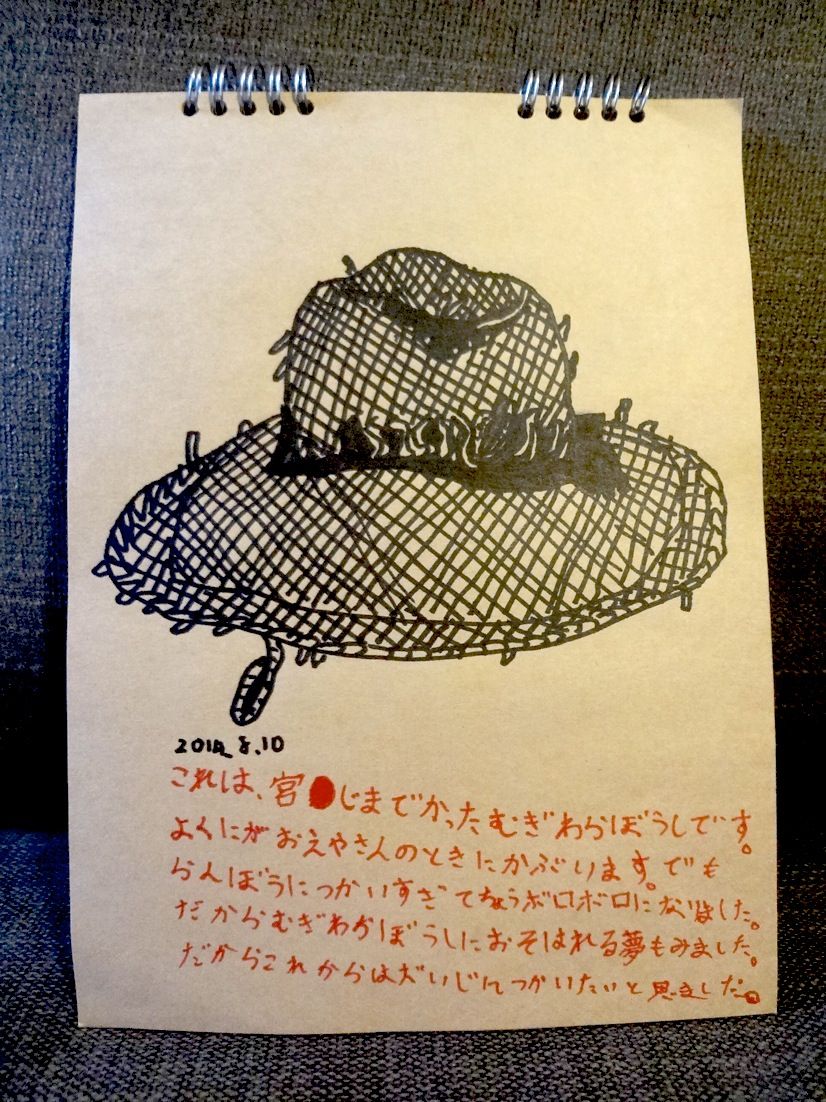 2014.8.10
これは、宮●じまでかったむぎわらぼうしです。
よくにがおえやさんのときにかぶります。でも
らんぼうにつかいすぎてちょうボロボロになりました。
だからむぎわらぼうしにおそはれる夢もみました。
だからこれからはだいじにつかいたいと思ました。